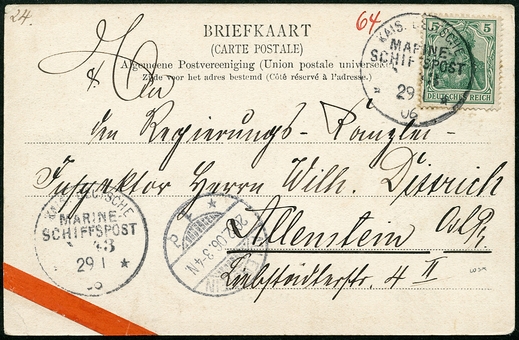 24.
BRIEFKAART
(CARTE POSTALE)
Algemeene Postvereeniging (Union postale universelle)
Zijde voor het adres bestemd (Côté réservé à l'adresse.)
64
5 5
DEUTSCHES REICH
KAIS. DEUTSCHE
MARINE-
SCHIFFSPOST
29
06
An
den Regierungs-Kanzlei-
Inspektor Herrn Wilh. Dittrich
Allenstein
Liebstädterstr. 4 II
KAIS. DEUTSCHE
MARINE-
SCHIFFSPOST
29 1
06